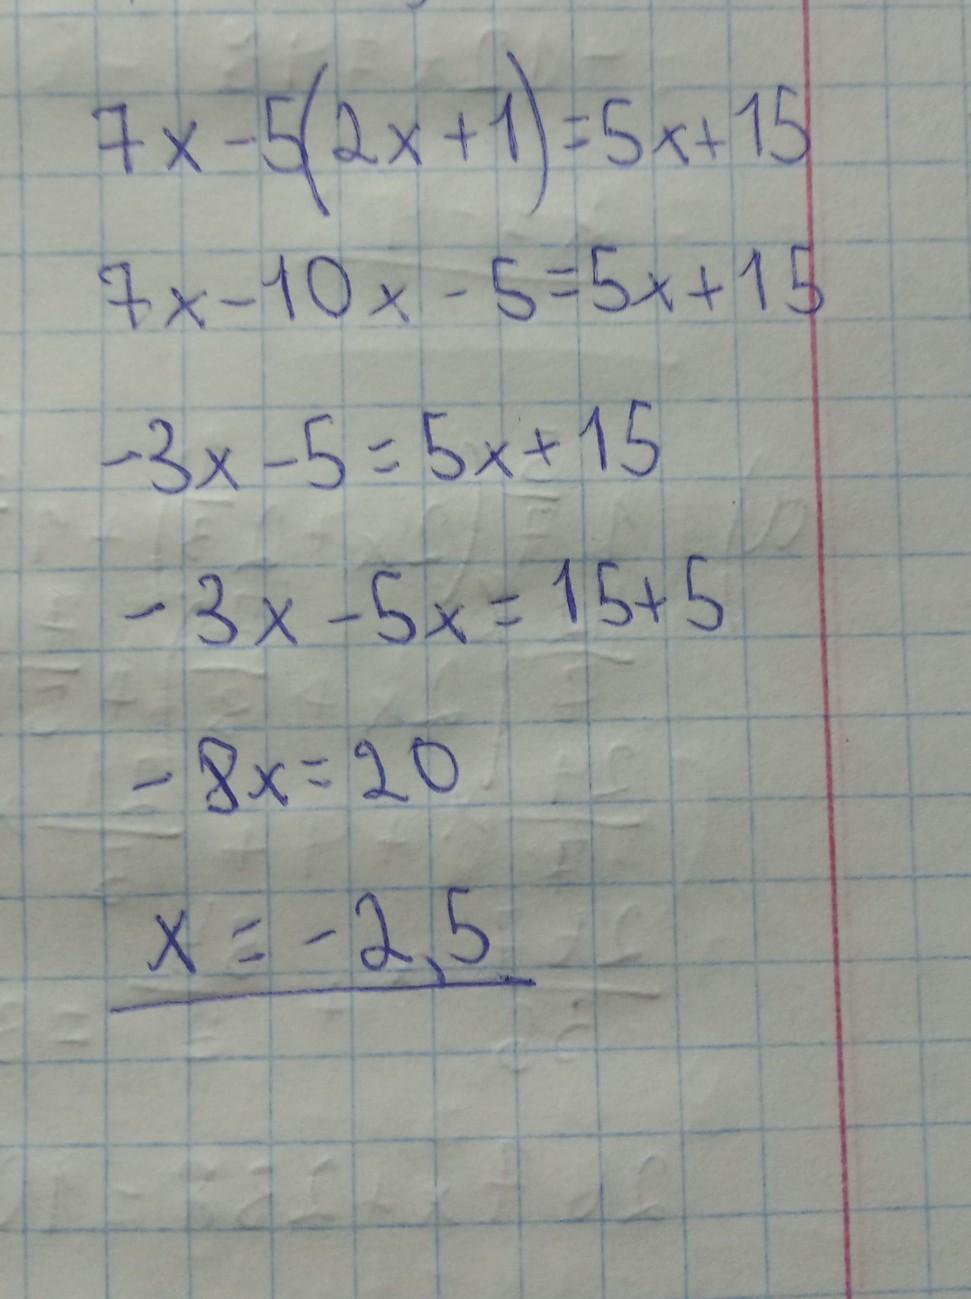 7x-5(2x+1)=5x+15
7x-10x-5=5x+15
-3x-5=5x+15
-3x-5x=15+5
-8x=20
x=-2,5